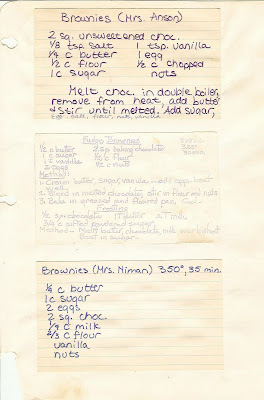 Brownies (Mrs. Anson)
2 sq. unsweetened choc.
1/8 tsp. salt 1 tsp. vanilla
1/4 c butter 1 egg
1/2 c flour 1/2 c chopped
1 c sugar nuts
Melt choc. in double boiler,
remove from heat, add butter
& stir until melted. Add sugar,
egg, flour, nuts, vanilla
Fudge Brownies
1/2 c butter 2 sq baking chocolate
1 c sugar flour
vanilla 1/2 c nuts
2 eggs
Method:
1. Cream butter, sugar, vanilla add eggs beat
well
2. Blend in melted chocolate, stir in flour and nuts
3. Bake in greased and floured pan. Cool.
Frosting
sq chocolate 1 T butter T milk
c sifted powdered sugar
Method- Melt butter, chocolate, milk over low heat
in sugar
Brownies (Mrs. Niman) 350°, 35 min.
1/4 c butter
1 c sugar
2 eggs
2 sq. choc.
1/4 c milk
2/3 c flour
vanilla
nuts